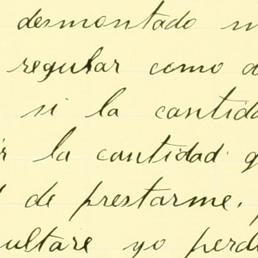 desmontado
regular como
si la cantida
r la cantidad
de prestarme.
ultare yo perd